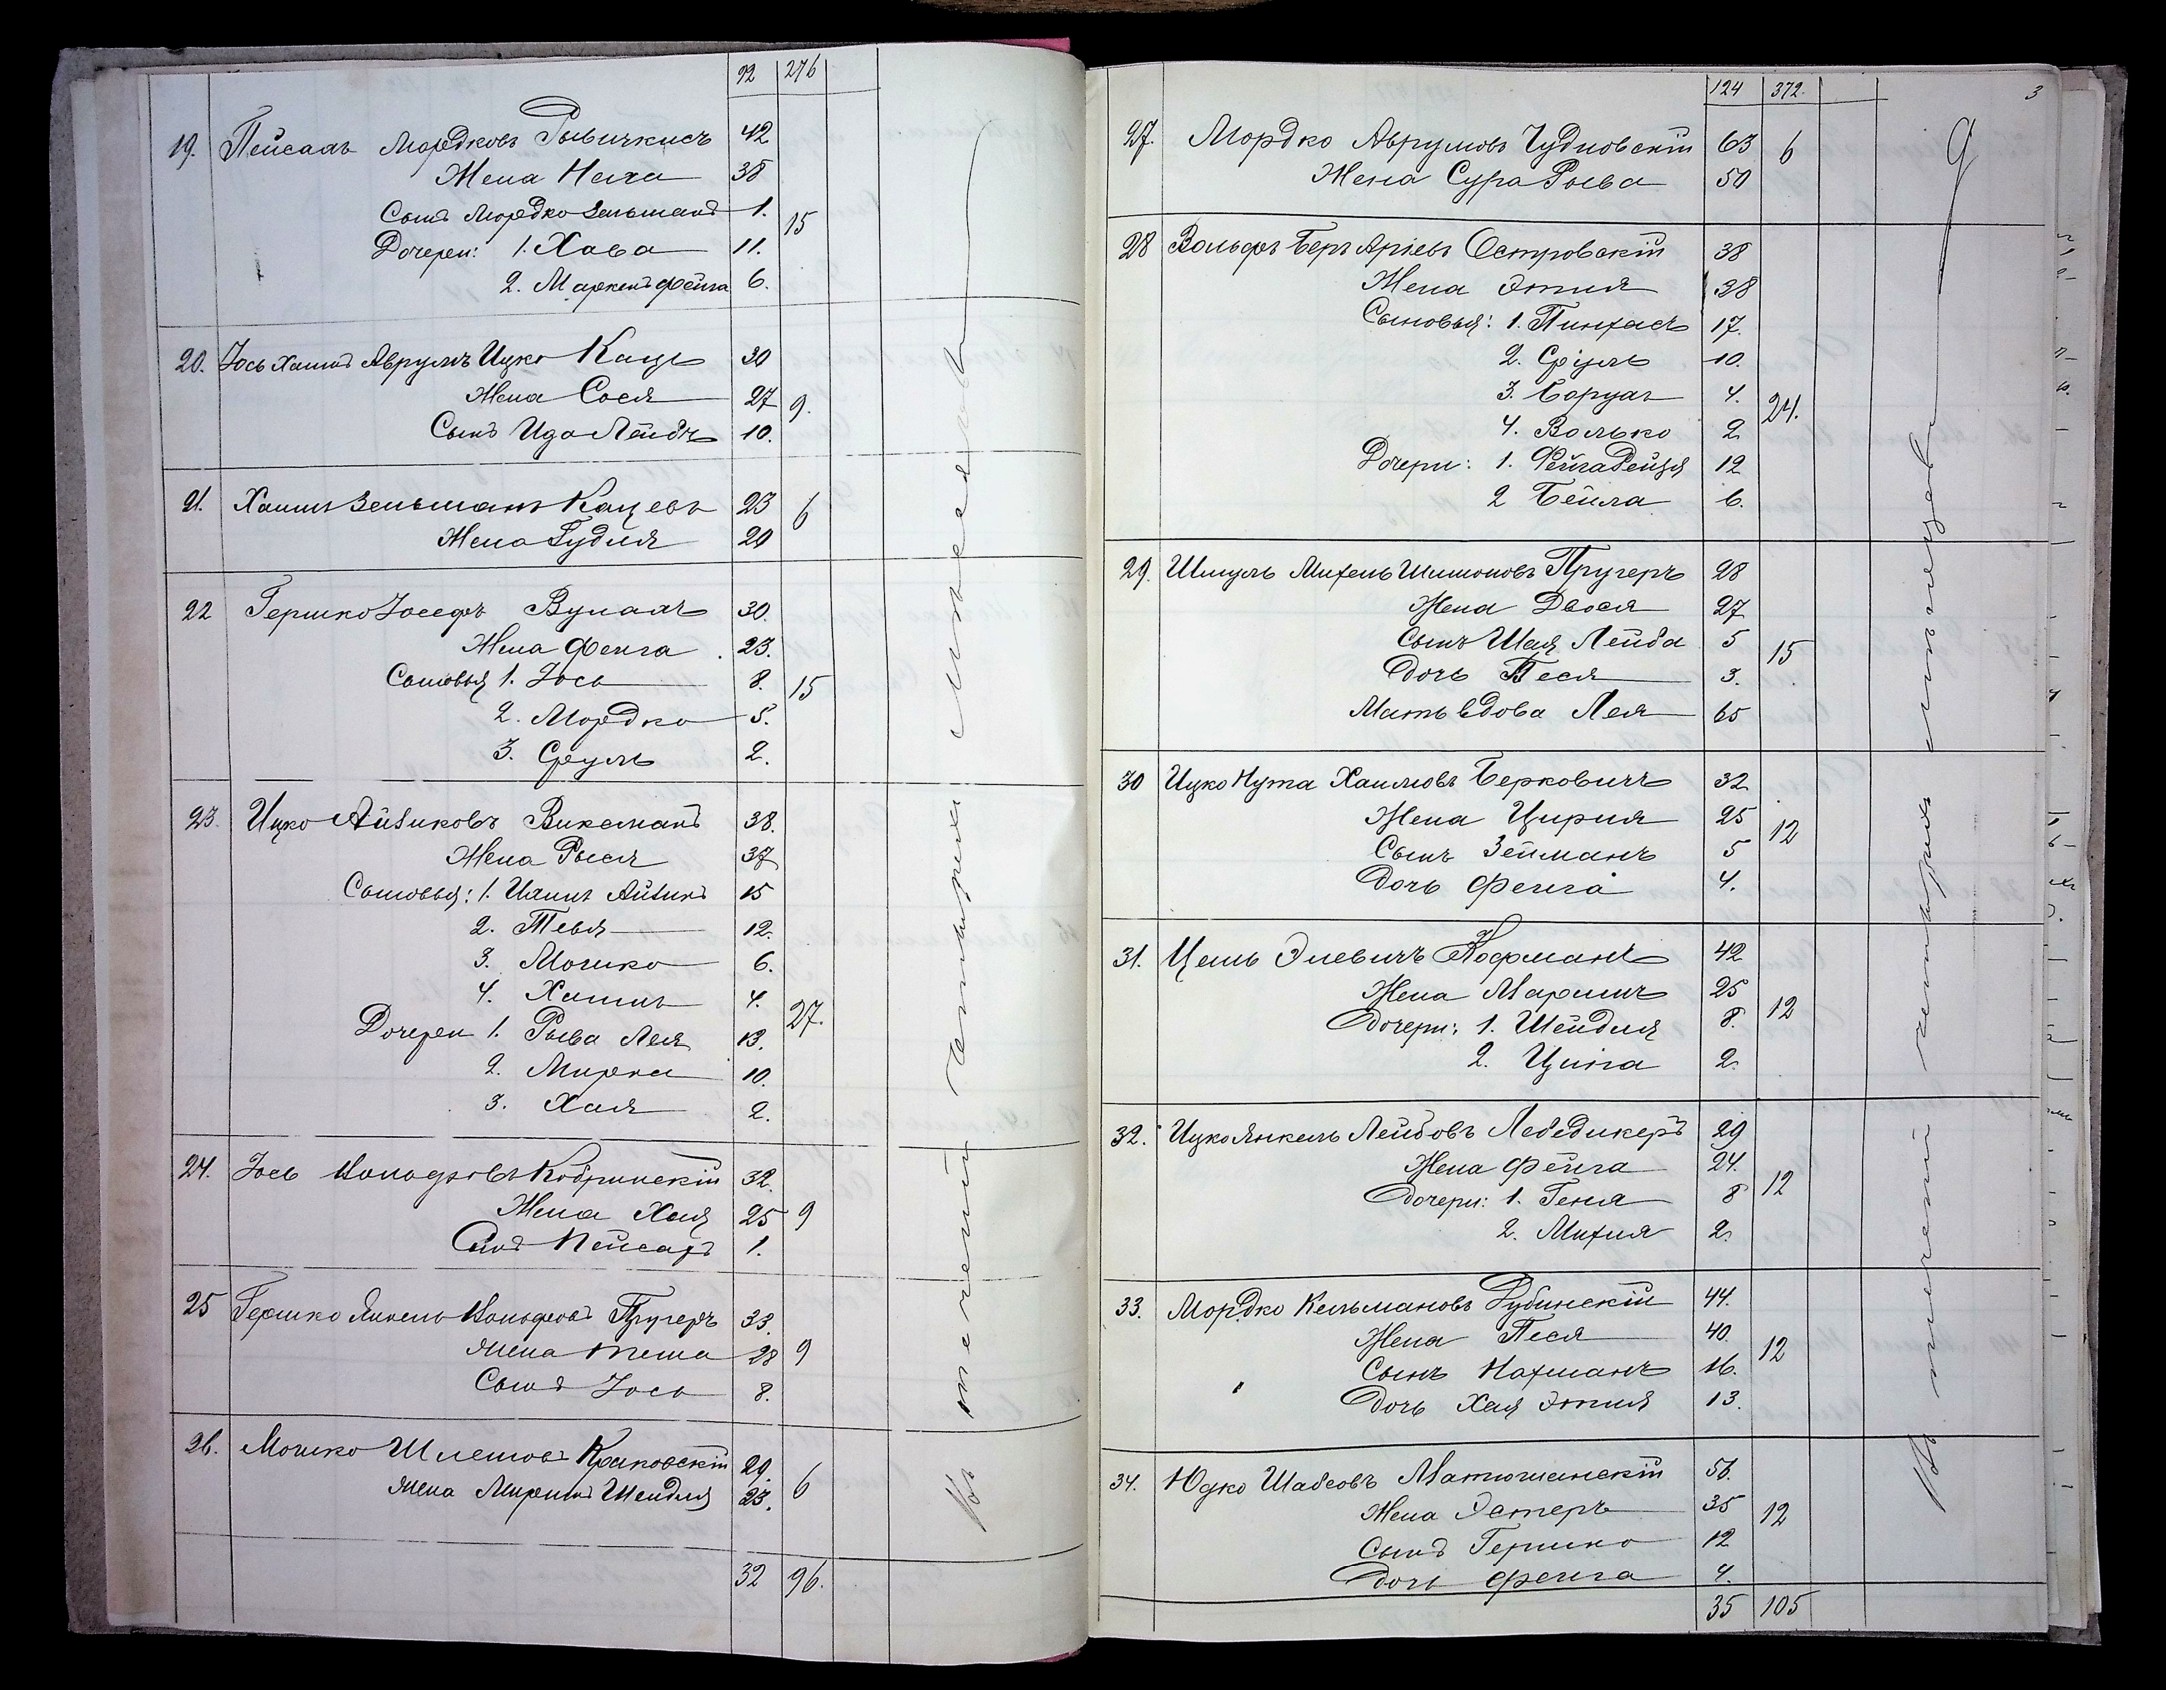 92 276
19. Пейсахъ Мордковъ Рывичкисъ 42
Жена Неха 38
Сынъ Мордко Зельманъ 1. 15
Дочери: 1. Хава 11.
2. Маркенъ Фейга 6.
20. Іось Хаимъ Аврумъ Ицко Кацъ 30
Жена Сося 27 9.
Сынъ Ида Лейбъ 10.
21. Хаимъ Зельманъ Кацевъ 23 6
Жена Гудля 20
22 Гершко Іосефъ Вулахъ 30.
Жена Фейга 23.
Сыновья 1. Іось 8. 15
2. Мордко 5.
3. Сруль 2.
23. Ицко Айзиковъ Виксманъ 38.
Жена Рыся 37
Сыновья: 1. Хаимъ Айзикъ 15
2. Тевя 12.
3. Мошко 6.
4. Хаимъ 4. 27.
Дочери 1. Рыва Лея 13.
2. Мирка 10.
3. Хая 2.
24. Іось Вольфовъ Кобринскій 32.
Жена Хая 25 9
Сынъ Пейсахъ 1.
25 Гершко Янкель Вольфовъ Пругеръ 33.
Жена Теша 28 9
Сынъ Іось 8.
26. Мошко Шлемовъ Краковскій 29. 6
Жена Мириамъ Шейдля 23.
32 96.
Въ теченіи четырехъ мѣсяцевъ
124 372. 3
27. Мордко Аврумовъ Чудновскій 63 6
Жена Сура Рыва 50
28 Вольфъ Беръ Аріевъ Островскій 38
Жена Этия 38
Сыновья: 1. Пинхасъ 17.
2. Сруль 10.
3. Борухъ 4. 24.
4. Волько 2
Дочери: 1. Фейга Рейзя 12
2 Бейла 6.
29. Шмуль Михель Шимоновъ Пругеръ 28
Жена Двося 27
Сынъ Шая Лейба 5 15
Дочь Песя 3.
Мать вдова Лея 65
30 Ицко Нута Хаимовъ Берковичъ 32
Жена Цирия 25 12
Сынъ Зейманъ 5
Дочь Фейга 4.
31. Цель Элевичъ Кофманъ 42
Жена Маримъ 25 12
Дочери: 1. Шейдля 8.
2. Цинга 2.
32. Ицко Янкель Лейбовъ Лебедикеръ 29
Жена Фейга 24. 12
Дочери: 1. Геня 8
2. Михля 2.
33. Мордко Кельмановъ Рубинскій 44.
Жена Песя 40. 12
Сынъ Нахманъ 16.
Дочь Хая Этия 13.
34. Юдко Шабсовъ Матюшанскій 56.
Жена Эстеръ 35 12
Сынъ Гершко 12
Дочь Фейга 4.
35 105
Въ теченіи четырехъ мѣсяцевъ